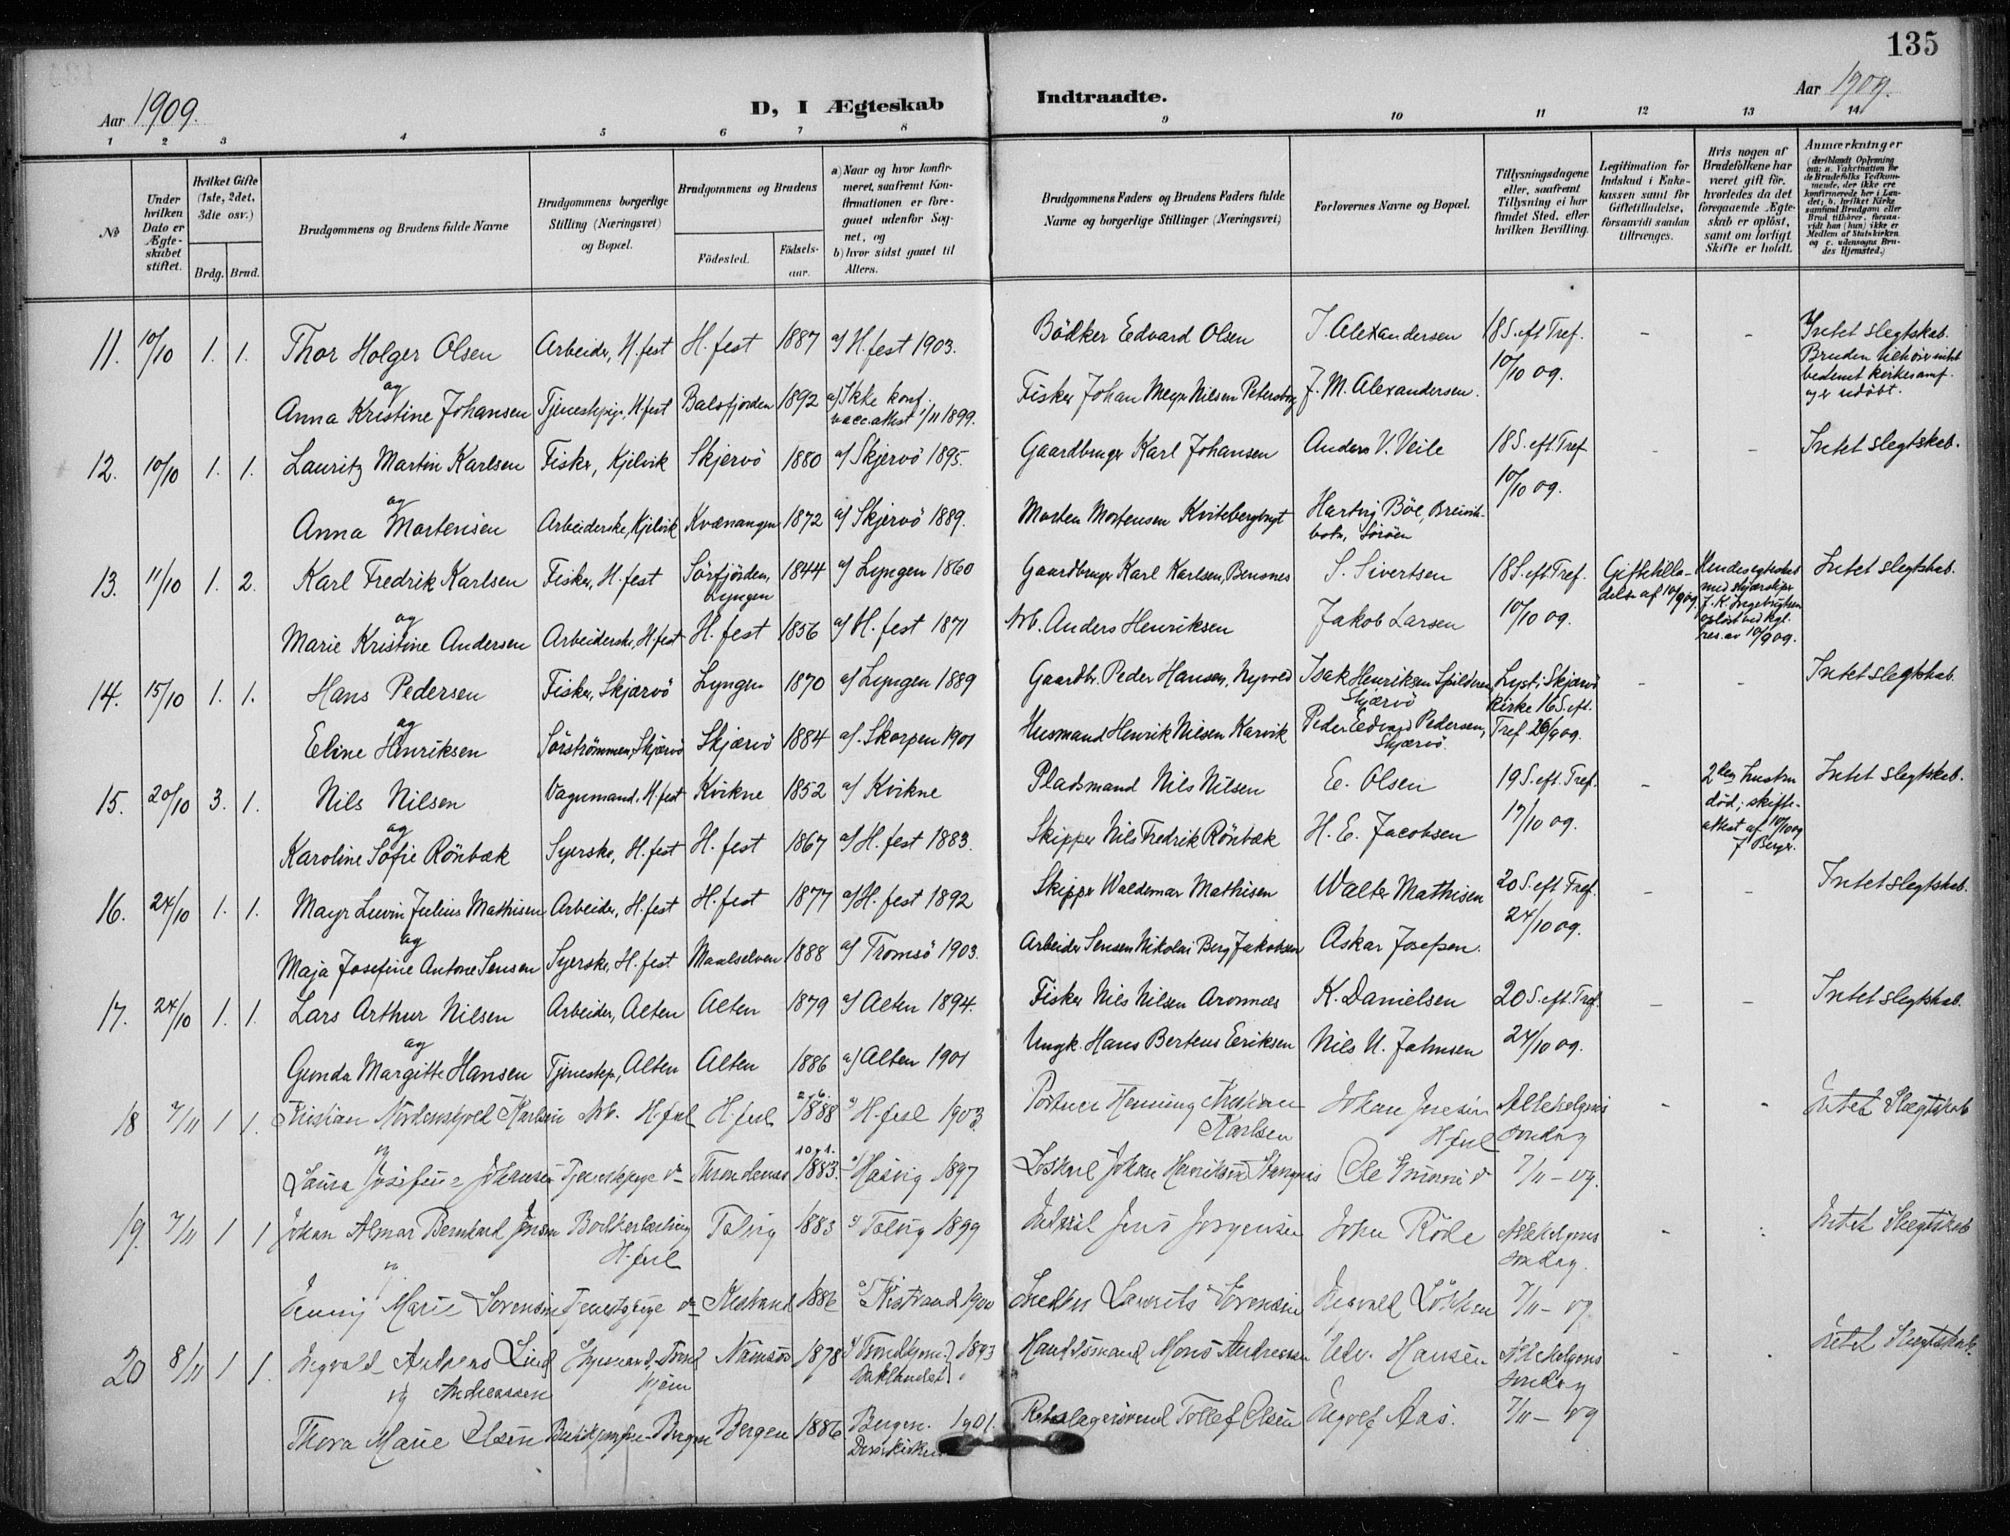 135
Aar 1909.
D, I Ægteskab Indtraadte.
Aar 1909.
1 2 3 4 5 6 7 8 9 10 11 12 13 14
No
Under hvilken Dato er Ægteskabet stiftet.
Hvilket Gifte (1ste, 2det, 3die osv.)
Brdg. Brud.
Brudgommens og Brudens fulde Navne
Brudgommens borgerlige Stilling (Næringsvei) og Bopæl.
Brudgommens og Brudens
Fødested.
Fødsels-aar.
a) Naar og hvor konfirmeret, saafremt Konfirmationen er foregaaet udenfor Sognet, og
b) hvor sidst gaaet til Alters.
Brudgommens Faders og Brudens Faders fulde Navne og borgerlige Stillinger (Næringsvei)
Forlovernes Navne og Bopæl.
Tillysningsdagene eller, saafremt Tillysning ei har fundet Sted, efter hvilken Bevilling.
Legitimation for Indskud i Enkekassen samt for Giftetilladelse, forsaavidt saadan tiltrænges.
Hvis nogen af Brudefolkene har været gift før, hvorledes da det foregaaende Ægteskab er opløst, samt om lovligt Skifte er holdt.
Anmærkninger
11. 10/10 1. 1. Thor Holger Olsen Arbeider, H.fest H.fest 1887 a) H.fest 1903. Bödker Edvard Olsen J. Alexandersen 18 S. eft Tref. 10/10 09. - - Intet slegtskab. Bruden tilhører intet bestemt kirkesamf. og er udöbt.
og
Anna Kristine Johansen Tjenestepige, H.fest Balsfjorden 1892 a) Ikke konf. vacc. attest 1/11 1899. Fisker Johan Meyer Nilsen J. M. Alexandersen.
12. 10/10 1. 1. Lauritz Martin Karlsen Fisker, Kjelvik Skjervö 1880 a) Skjervö 1895. Gaardbruger Karl Johansen Anders V. Veile 18 S. eft. Tref 10/10 09. - - Intet slegtskab.
og
Anna Mortensen Arbeiderske, Kjelvik Kvænangen 1872 a) Skjervö 1889. Morten Mortensen Hartvig Böe, Breivikbotn, Söröen
13. 11/10 1. 2. Karl Fredrik Karlsen Fisker, H.fest Sörfjorden, Lyngen 1844 a) Lyngen 1860 Gaardbruger Karl Karlsen, Bensnes S. Sivertsen 18 S. eft Tref. 10/10 09. Giftetilladelse af 10/9 09. Intet slegtskab.
og
Marie Kristine Andersen Arbeiderske, H.fest H.fest 1856 a) H.fest 1871 Arb. Anders Henriksen Jakob Larsen
14. 15/10 1. 1. Hans Pedersen Fisker, Skjærvö Lyngen 1870 a) Lyngen 1889 Gaardbr. Peder Hansen, Nyvold Isak Henriksen Spildern, Skjærvö Lyst i Skjærvö kirke 16 S. eft. Tref 26/9 09. - - Intet slegtskab.
og
Eeline Henriksen Sörströmmen, Skjærvö Skjærvö 1884 a). Skorpen 1901 Husmand Henrik Nilsen Karvik Peder Edvard Pedersen, Skjærvö.
15. 20/10 3. 1. Nils Nilsen Vognmand, H.fest Kvikne 1852 a) Kvikne Pladsmand Nils Nilsen E. Olsen 19 S. eft. Tref. 17/10 09. - 2den hustru död; skifteattest af 10/10 09 Intet slegtskab.
og
Karoline Sofie Rönbæk Syerske, H.fest H.fest 1867 a) H.fest 1883. Skipper Nils Fredrik Rönbæk H. E. Jacobsen
16. 24/10 1. 1. Mayr Luvin Julius Mathisen Arbeider, H.fest H.fest 1877 a) H.fest 1892 Skipper Waldemar Mathisen Walter Mathisen 20 S. eft Tref. 24/10 09. - - Intet slegtskab.
og
Maja Josefine Antone Jensen Syerske, H.fest Maalselven 1888 a) Tromsö 1903. Arbeider Jensen Nikolai Berg Jakobsen Askar Josefsen.
17. 24/10 1. 1. Lars Arthur Nilsen Arbeider, Alten Alten 1879 a) Alten 1894. Fisker Nils Nilsen Aronnæs K. Danielsen 20 S. eft. Tref. 24/10 09. - - Intet slegtskab.
og
Gunda Margitte Hansen Tjenestep., Alten Alten 1886 a) Alten 1901 Ungk. Hans Berteus Eeriksen Nils U. Johnsen
18 7/11 1 1. Kristian Nordenskjold Karlsen Arb. H.fest H.fest 1888 H.fest 1903. Henning Karlsen Johan Jensen H.fest Allehelgens söndag 7/11 - 09. - - Intet Slegtskab
og
Laura Josefine Johansen Tjenestepige Do Trondenæs 1883. Hasvig 1897 Johan Henriksen Ole
19. 7/11 1 1 Johan Almar Bernhard Jensen H.fest Talvig 1883 Talvig 1899 Jens Jorgensen John Röde Allehelgens söndag. 7/11 - 09 - - Intet Slegtskab
og
Jenny Marie Sorensen Tjenestepige Do Kistrand 1886 Kistrand 1900 Snedker Laurits Sorensen Ingvald Lökken
20 8/11 1 1. Ingvald Antzens Lind Andreassen Namsos 1878 Trondhjem Baklandet 1893 Mons Andreassen Edv. Hansen Allehelgens söndag 7/11 - 09 - - Intet Slegtskab.
og
Thora Marie Olsen Bergen Bergen 1886 Bergen Domkirken 1901. Tollef Olsen Ingolf Aas.